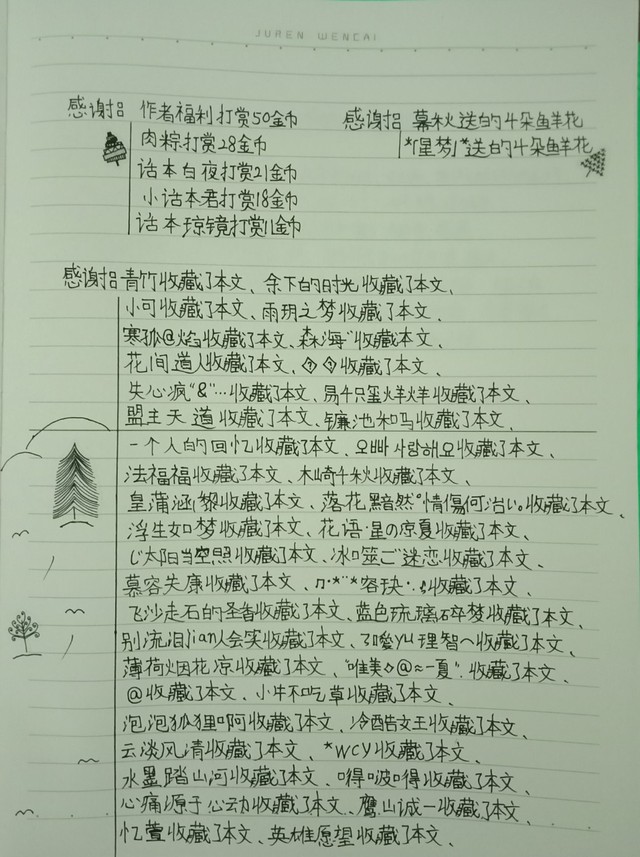 JUREN WENCAI
感谢吕 作者福利打赏50金币 感谢吕 幕秋送的4朵鱼羊花
肉粽打赏28金币 *「星梦」*送的4朵鱼羊花
话本白夜打赏21金币
小话本君打赏18金币
话本琼镜打赏1金币
感谢吕青竹收藏了本文、余下的时光收藏了本文、
小可收藏了本文、雨玥之梦收藏了本文、
寒孤@焰收藏了本文、森海收藏了本文、
花间道人收藏了本文、收藏了本文、
失心疯“&”…收藏了本文、易千只蛋烊烊收藏了本文、
盟主天道收藏了本文、镰池和马收藏了本文、
一个人的回忆收藏了本文、오빠 사랑해요收藏了本文、
法福福收藏了本文、木崎千秋收藏了本文、
皇蒲涵黎收藏了本文、落花黯然°情傷何治い。收藏了本文、
浮生如梦收藏了本文、花语·星の凉夏收藏了本文、
じ太阳当空照收藏了本文、冰口筮ご迷恋收藏了本文、
慕容失康收藏了本文、容玦收藏了本文、
飞沙走石的圣香收藏了本文、蓝色琉璃碎梦收藏了本文、
别流泪Jian人会实收藏了本文、了噯yu理智へ收藏了本文、
薄荷烟花凉收藏了本文、“唯美◇@≈一夏”收藏了本文、
@收藏了本文、小牛不吃草收藏了本文、
泡泡狐狸啊收藏了本文、冷酷女王收藏了本文、
云淡风清收藏了本文、*WCY收藏了本文、
水墨踏山河收藏了本文、嘚啵嘚收藏了本文、
心痛源于心动收藏了本文、鹰山诚一收藏了本文、
忆萱收藏了本文、英雄愿望收藏了本文、